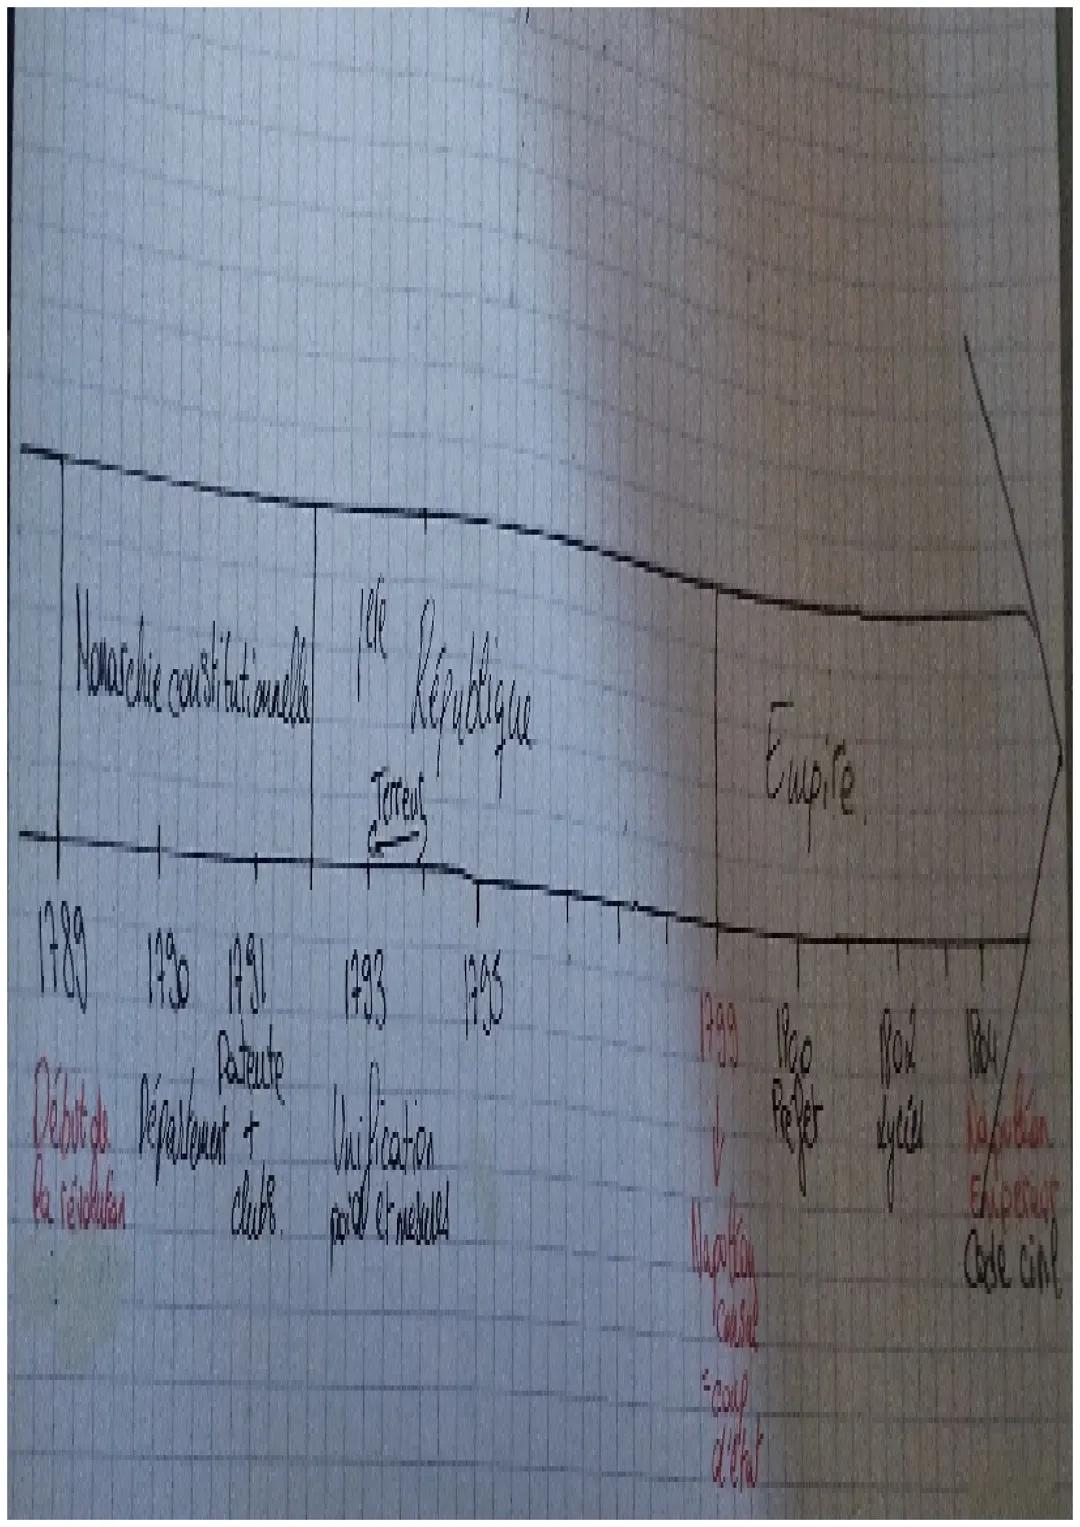 Monarchie constitutionnelle
1ère République
Terreur
Empire
1789
1790
1791
1793
1795
1799
1800
1802
1804
Début de
la révolution
Département
Patente
+
clubs.
Unification
poids et mesures
Napoléon
consul
= coup
d'état
Préfet
Lycées
Napoléon
Empereur
Code civil